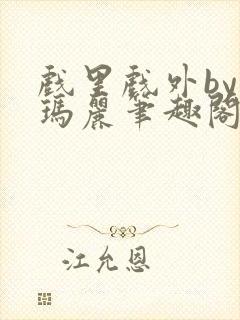 戲里戲外by
瑪麗筆趣閣
江允恩